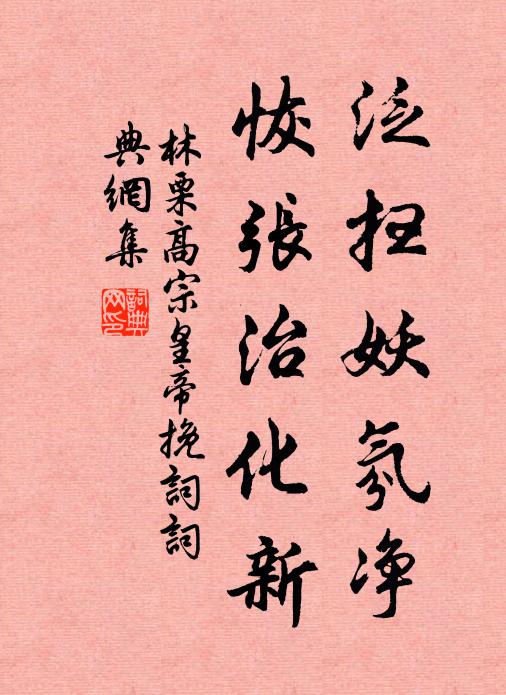 泛扫妖氛净
恢张治化新
林栗高宗皇帝挽詞詞
典網集
詞典
网印